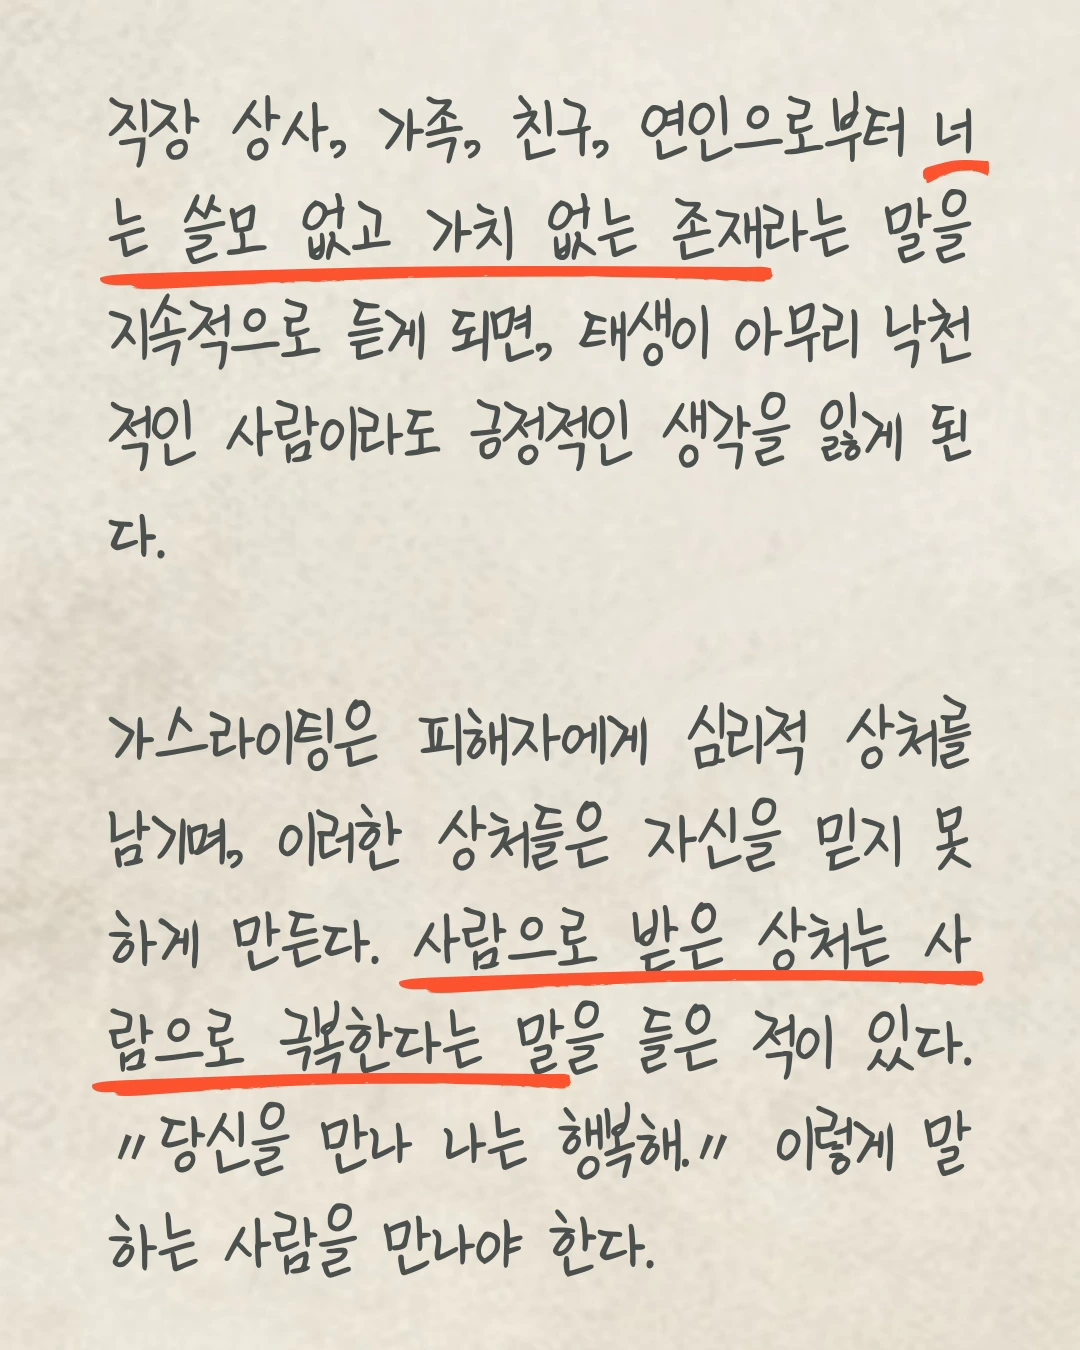 직장 상사, 가족, 친구, 연인으로부터 너
는 쓸모 없고 가치 없는 존재라는 말을
지속적으로 듣게 되면, 태생이 아무리 낙천
적인 사람이라도 긍정적인 생각을 잃게 된
다.
가스라이팅은 피해자에게 심리적 상처를
남기며, 이러한 상처들은 자신을 믿지 못
하게 만든다. 사람으로 받은 상처는 사
람으로 극복한다는 말을 들은 적이 있다.
"당신을 만나 나는 행복해." 이렇게 말
하는 사람을 만나야 한다.